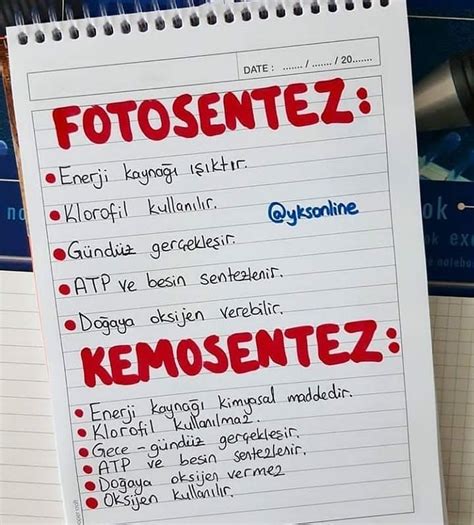 DATE : ....... / ....... / 20.......
FOTOSENTEZ:
• Enerji kaynağı ışıktır.
• Klorofil kullanılır.
@yksonline
• Gündüz gerçekleşir.
• ATP ve besin sentezlenir.
• Doğaya oksijen verebilir.
KEMOSENTEZ:
• Enerji kaynağı kimyasal maddedir.
• Klorofil kullanılmaz.
• Gece-gündüz gerçekleşir.
• ATP ve besin sentezlenir.
• Doğaya oksijen vermez
• Oksijen kullanılır.